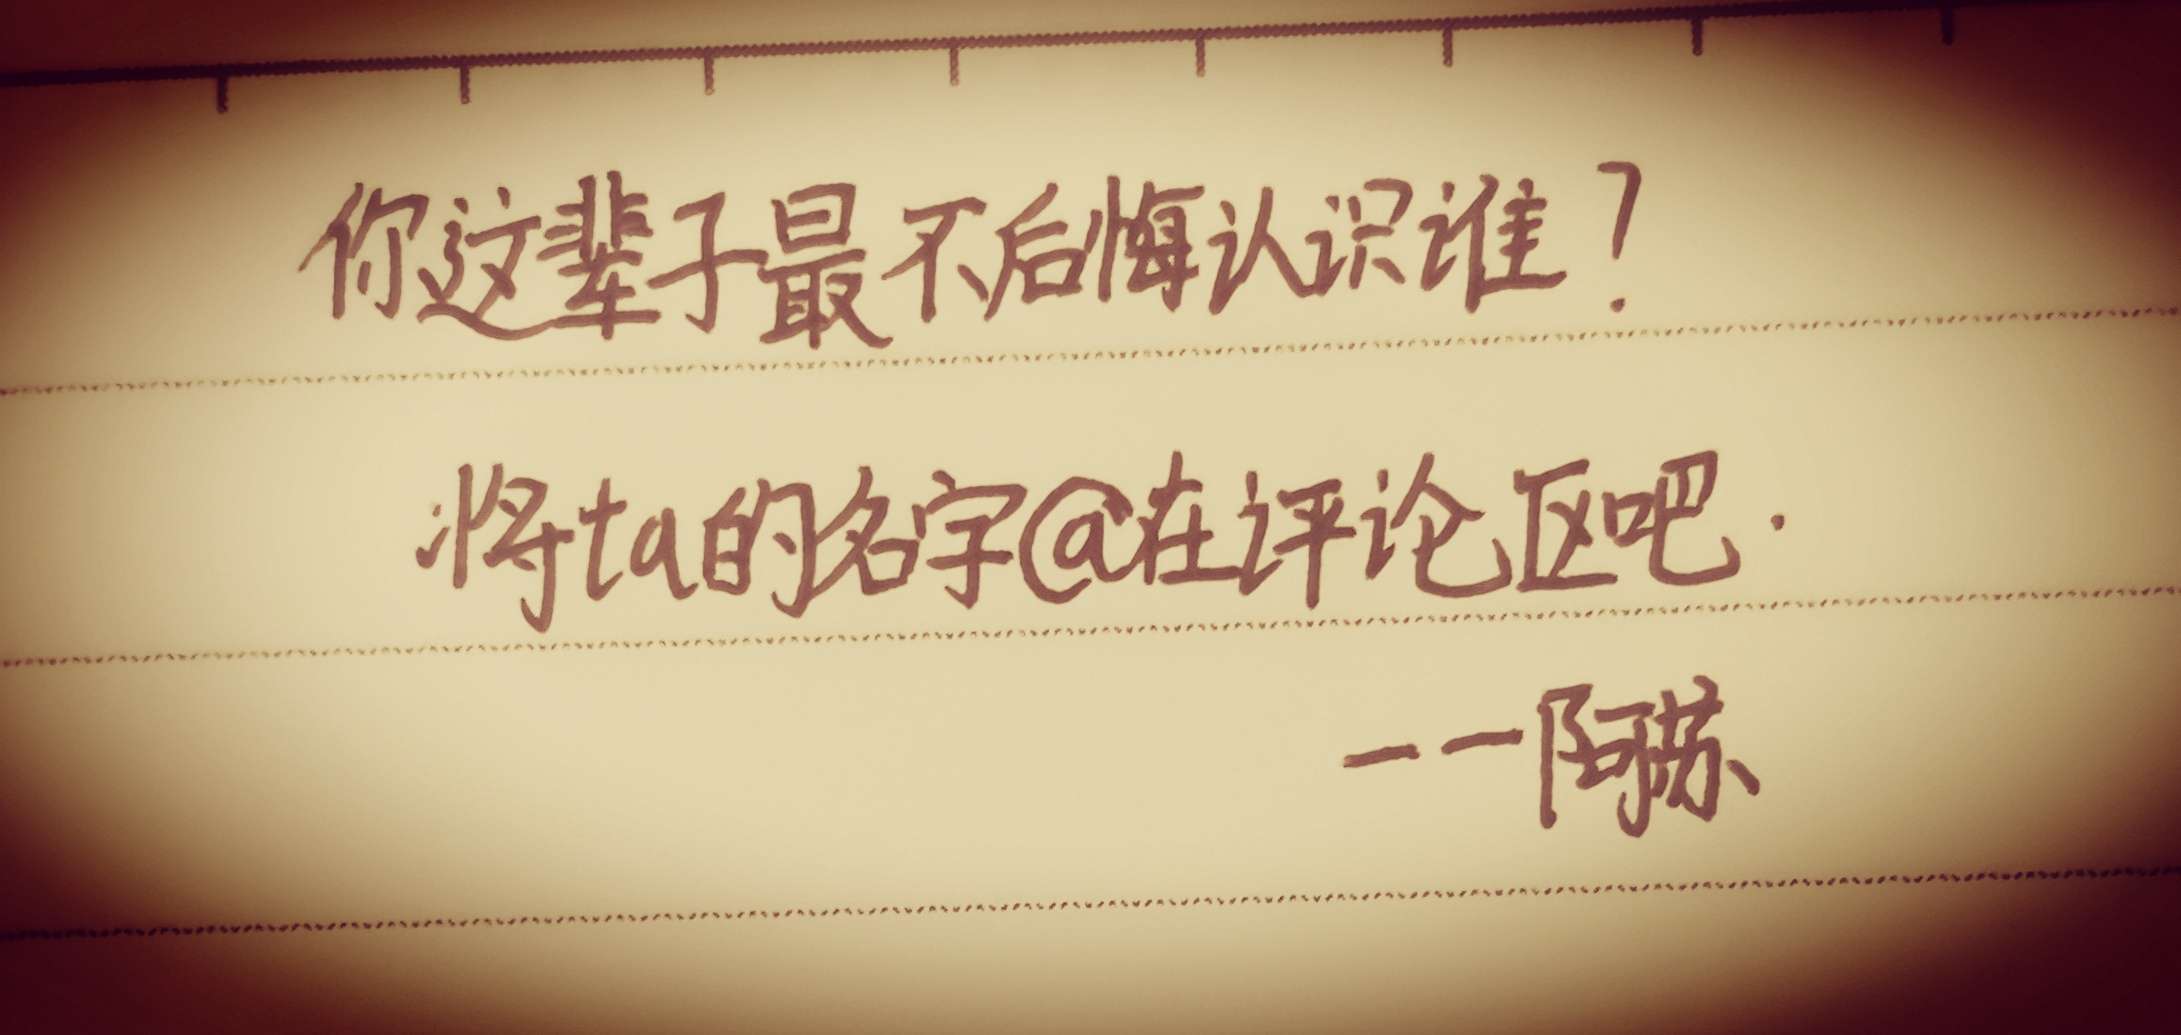 你这辈子最不后悔认识谁？
将ta的名字@在评论区吧.
——阿苏